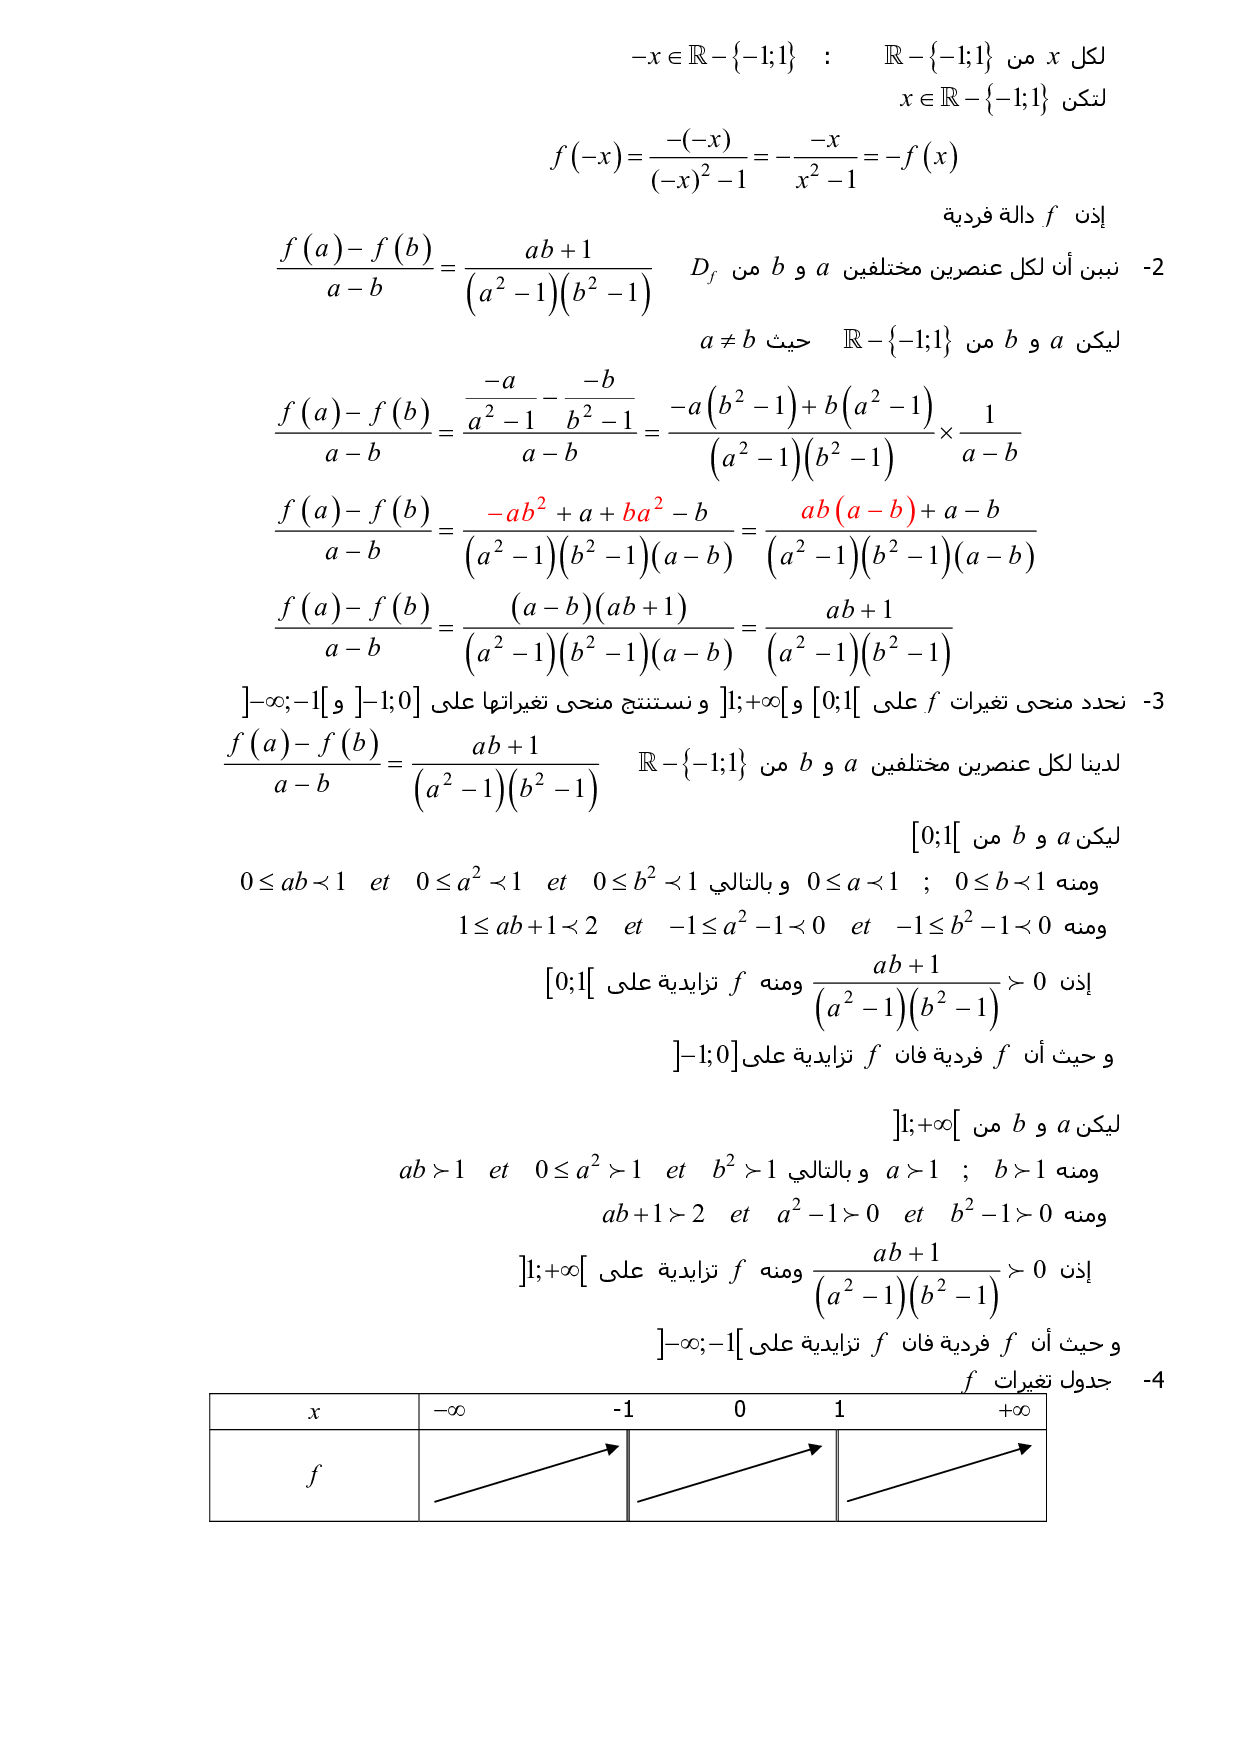 لكل x من ℝ−{−1;1} : −x∈ℝ−{−1;1}
لتكن x∈ℝ−{−1;1}
f(−x) = −(−x)/((−x)²−1) = − −x/(x²−1) = −f(x)
إذن f دالة فردية
2- نبين أن لكل عنصرين مختلفين a و b من D_f (f(a)−f(b))/(a−b) = (ab+1)/((a²−1)(b²−1))
ليكن a و b من ℝ−{−1;1} حيث a≠b
(f(a)−f(b))/(a−b) = (−a/(a²−1) − −b/(b²−1))/(a−b) = (−a(b²−1)+b(a²−1))/((a²−1)(b²−1)) × 1/(a−b)
(f(a)−f(b))/(a−b) = (−ab²+a+ba²−b)/((a²−1)(b²−1)(a−b)) = (ab(a−b)+a−b)/((a²−1)(b²−1)(a−b))
(f(a)−f(b))/(a−b) = ((a−b)(ab+1))/((a²−1)(b²−1)(a−b)) = (ab+1)/((a²−1)(b²−1))
3- نحدد منحى تغيرات f على [0;1[ و ]1;+∞[ و نستنتج منحى تغيراتها على ]−1;0] و ]−∞;−1[
لدينا لكل عنصرين مختلفين a و b من ℝ−{−1;1} (f(a)−f(b))/(a−b) = (ab+1)/((a²−1)(b²−1))
ليكن a و b من [0;1[
ومنه 0≤a≺1 ; 0≤b≺1 و بالتالي 0≤ab≺1 et 0≤a²≺1 et 0≤b²≺1
ومنه 1≤ab+1≺2 et −1≤a²−1≺0 et −1≤b²−1≺0
إذن (ab+1)/((a²−1)(b²−1)) ≻ 0 ومنه f تزايدية على [0;1[
و حيث أن f فردية فان f تزايدية على ]−1;0]
ليكن a و b من ]1;+∞[
ومنه a≻1 ; b≻1 و بالتالي ab≻1 et 0≤a²≻1 et b²≻1
ومنه ab+1≻2 et a²−1≻0 et b²−1≻0
إذن (ab+1)/((a²−1)(b²−1)) ≻ 0 ومنه f تزايدية على ]1;+∞[
و حيث أن f فردية فان f تزايدية على ]−∞;−1[
4- جدول تغيرات f
x −∞ -1 0 1 +∞
f